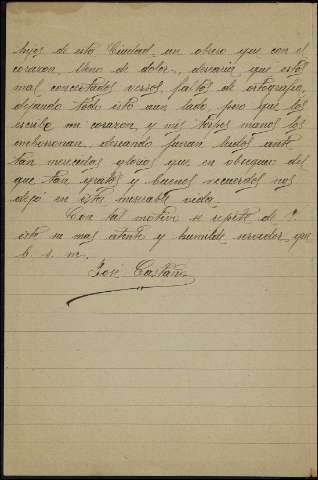 hijos de esta Ciudad, un obrero que con el
corazon, lleno de dolor, desearia que estos
mas concertados versos, faltos de ortografia,
dejando todo esto aun lado, pero que los
escribo mi corazon, y mis torpes manos los
emborronan, deseando fueran leidos ante
tan merecidas glorias que en obsequio del
que tan gratos y buenos recuerdos nos
dejo en esta miserable vida.
Con tal motivo se repite de V.
este su mas atento y humilde servidor, que
b. s. m.
José Castañ